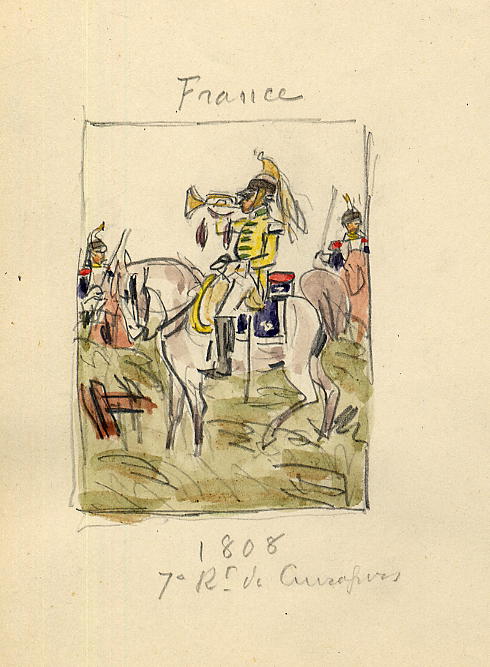 France
1808
7º Rt de Cuirassiers